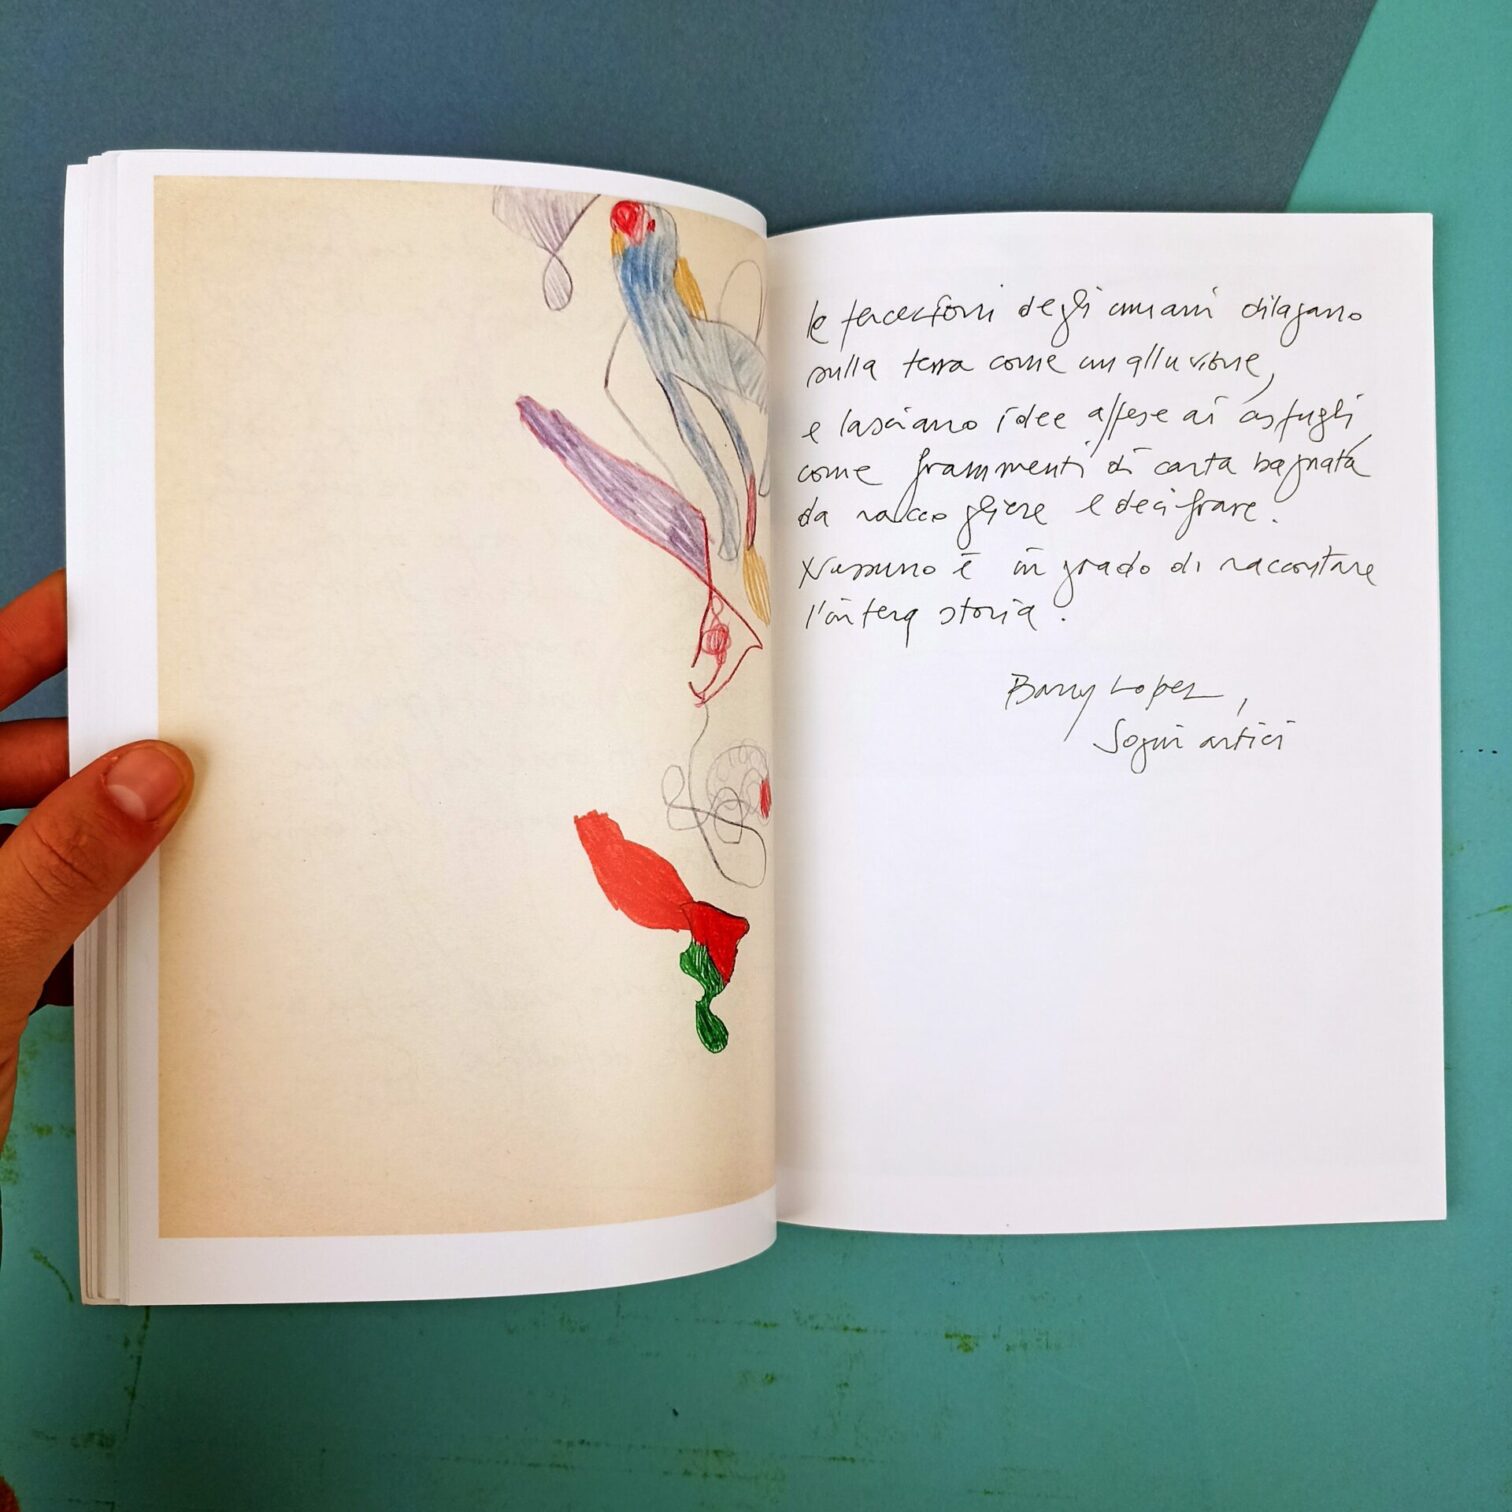 le percezioni degli umani dilagano
sulla terra come un alluvione,
e lasciano idee appese ai cespugli,
come frammenti di carta bagnata
da raccogliere e decifrare.
Nessuno è in grado di raccontare
l'intera storia.
Barry Lopez,
Sogni artici